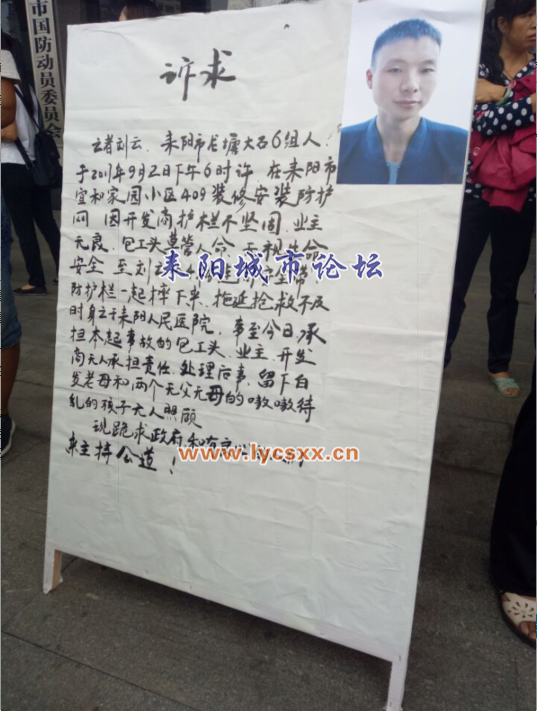 市国防动员委员会
诉求
亡者刘云、耒阳市长塘大石6组人.
于2011年9月2日下午6时许 在耒阳市
宜和家园小区409装修安装防护
网 因开发商护栏不坚固、业主
无良、包工头草菅人命、无视生命
安全 至刘云
耒阳城市论坛
防护栏一起摔下来、拖延抢救不及
时身亡于耒阳人民医院、事至今日、承
担本起事故的包工头、业主、开发
商无人承担责任、处理后事、留下白
发老母和两个无父无母的嗷嗷待
乳的孩子无人照顾
现跪求政府和有
www.lycsxx.cn
来主持公道！